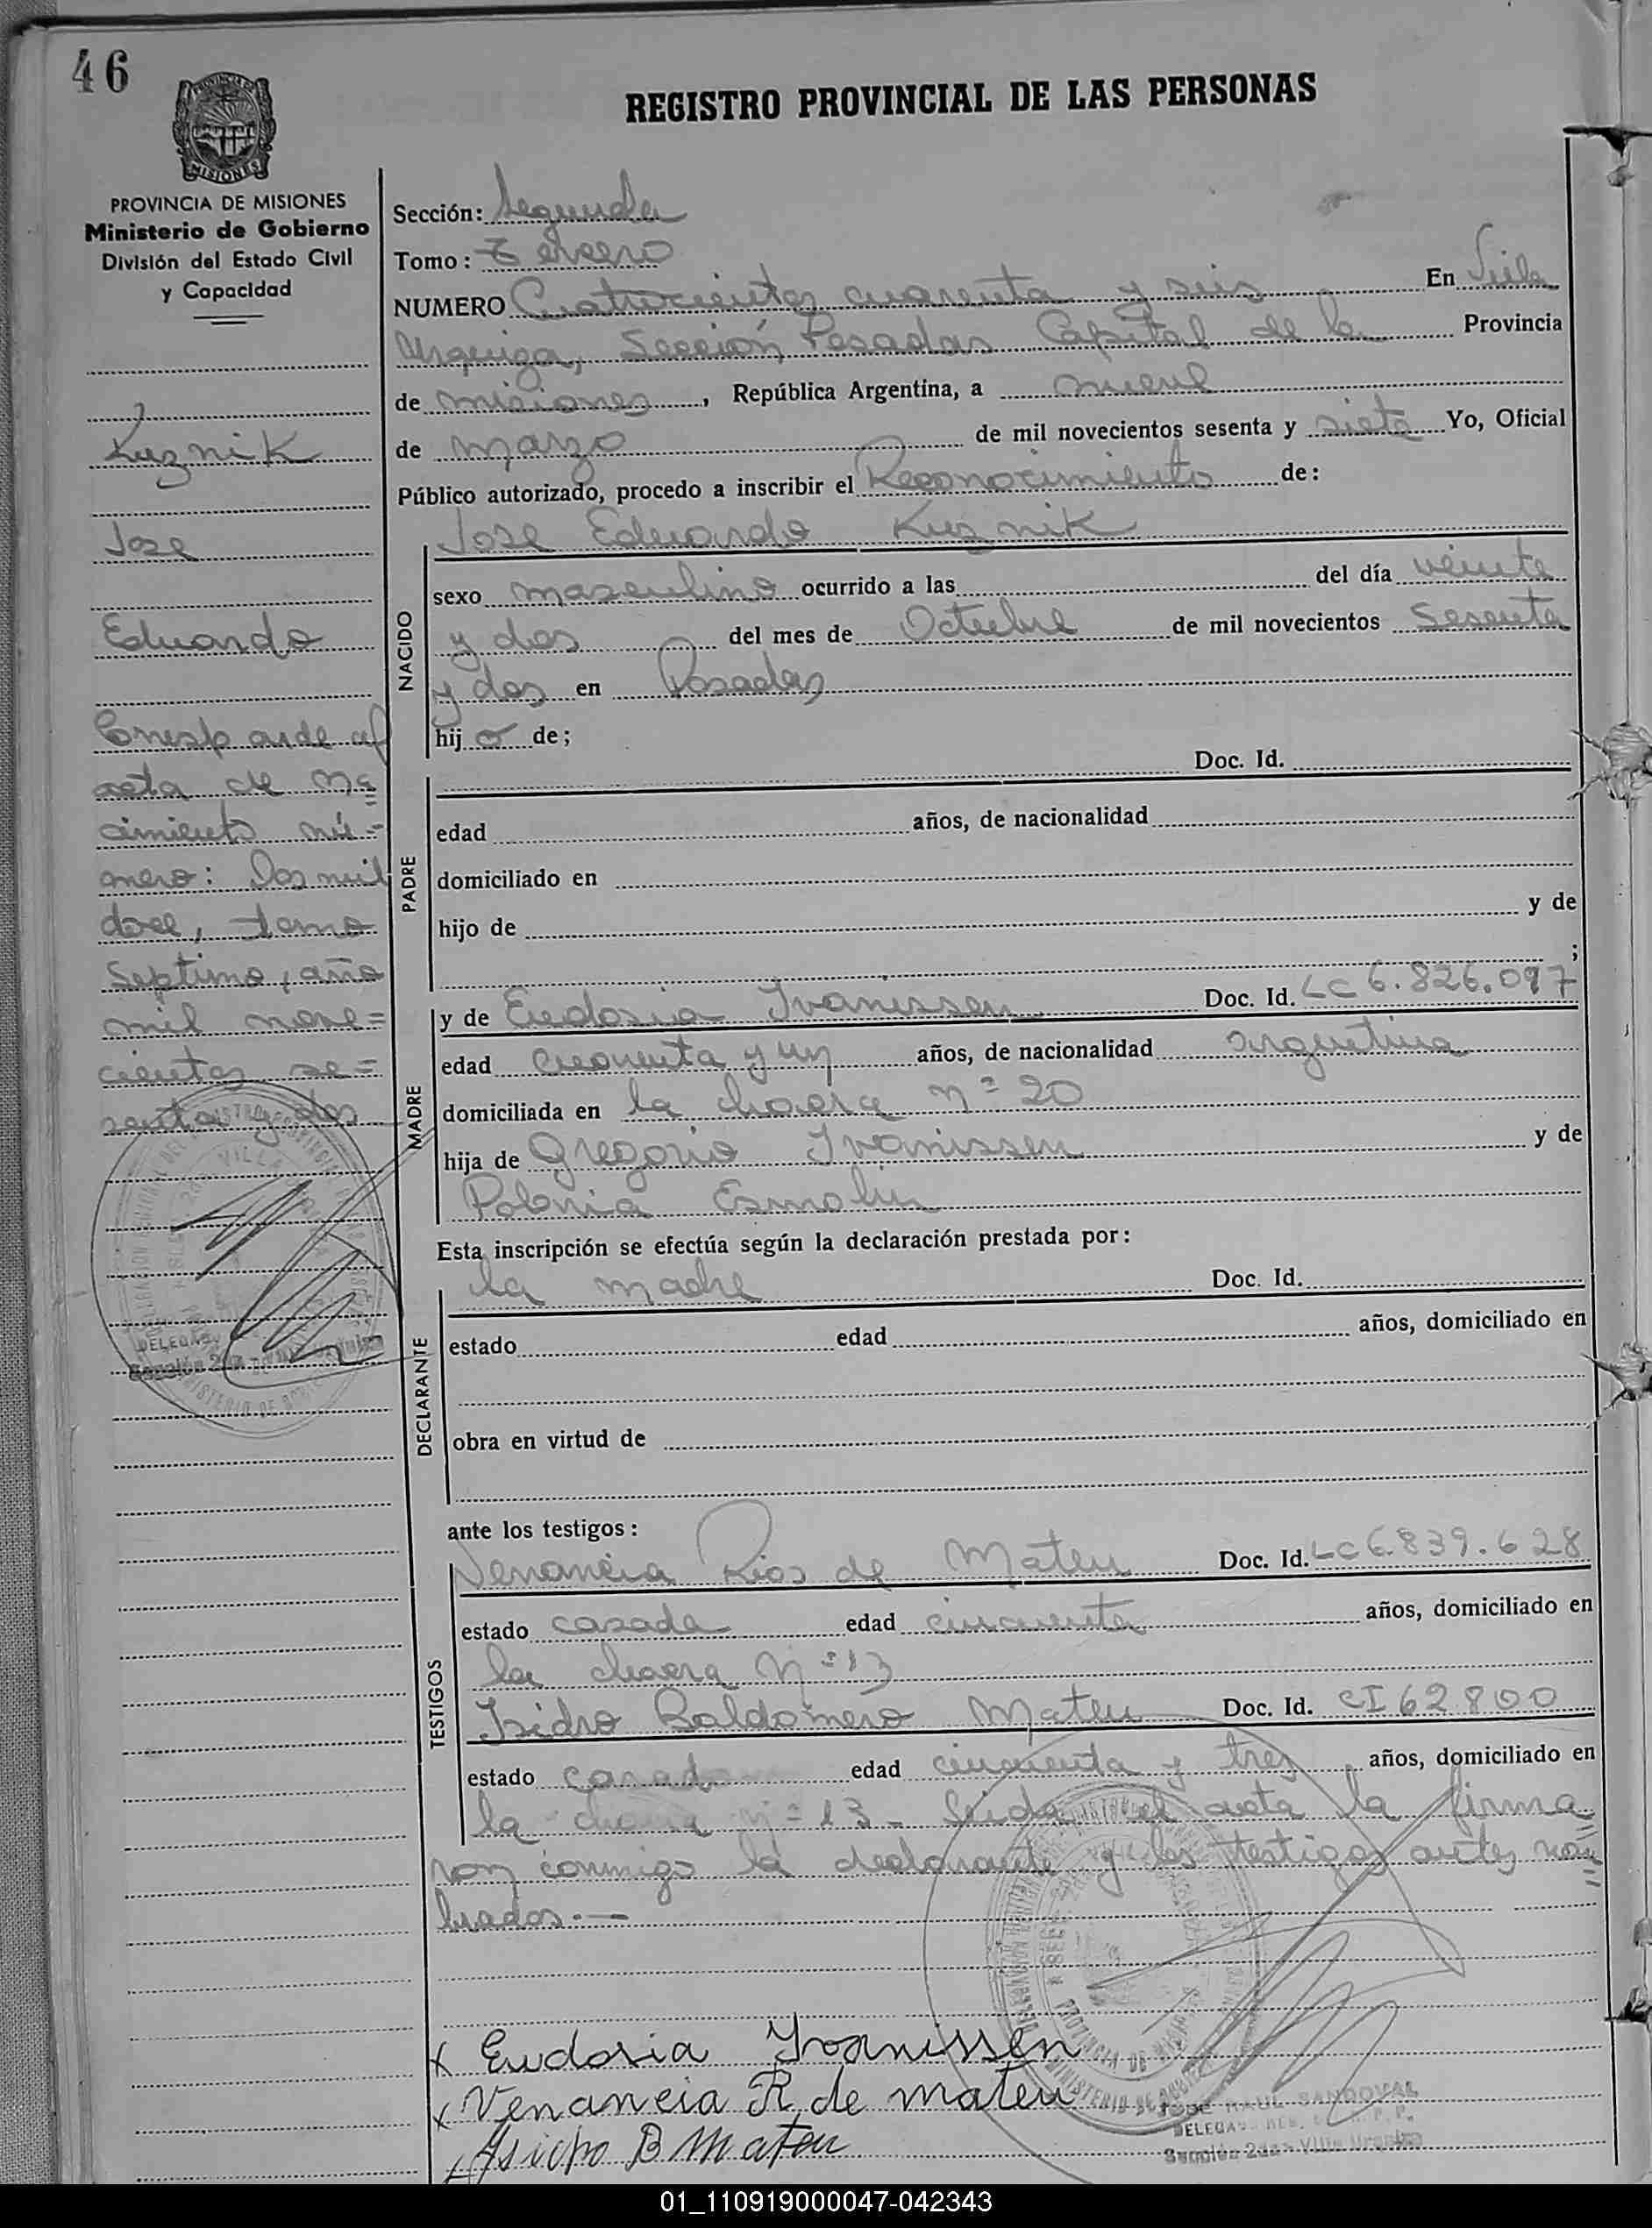 46
REGISTRO PROVINCIAL DE LAS PERSONAS
MISIONES
PROVINCIA DE MISIONES
Ministerio de Gobierno
División del Estado Civil
y Capacidad
Kuznik
Jose
Eduardo
Corresponde al
acta de na
cimiento nú=
mero: Dos mil
doce, tomo
Septimo, año
mil nove=
cientos se=
senta y dos
Sección: Segunda
Tomo: Tercero
NUMERO Cuatrocientos cuarenta y seis En Villa
Urquiza, Sección Posadas Capital de la Provincia
de misiones, República Argentina, a nueve
de marzo de mil novecientos sesenta y siete Yo, Oficial
Público autorizado, procedo a inscribir el Reconocimiento de:
Jose Eduardo Kuznik
NACIDO
sexo masculino ocurrido a las del día veinte
y dos del mes de Octubre de mil novecientos sesenta
y dos en Posadas
hijo de;
Doc. Id.
PADRE
edad años, de nacionalidad
domiciliado en
hijo de y de
;
MADRE
y de Eudosia Ivanissen Doc. Id. LC 6.826.097
edad cuarenta y un años, de nacionalidad argentina
domiciliada en la chacra nº 20
hija de Gregorio Ivanissen y de
Polonia Esmolin
Esta inscripción se efectúa según la declaración prestada por:
DECLARANTE
la madre Doc. Id.
estado edad años, domiciliado en
obra en virtud de
ante los testigos:
TESTIGOS
Venancia Rios de Mateu Doc. Id. LC 6.839.628
estado casada edad cincuenta años, domiciliado en
la chacra Nº 13
Isidro Baldomero Mateu Doc. Id. CI 62800
estado casado edad cincuenta y tres años, domiciliado en
la chacra nº 13 - Leida el acta la firma
ron conmigo la declarante y los testigos antes nom
brados.—
x Eudosia Ivanissen
x Venancia R. de mateu
Isidro B Mateu
JOSE RAUL SANDOVAL
Sección 2da - Villa Urquiza
01_110919000047-042343